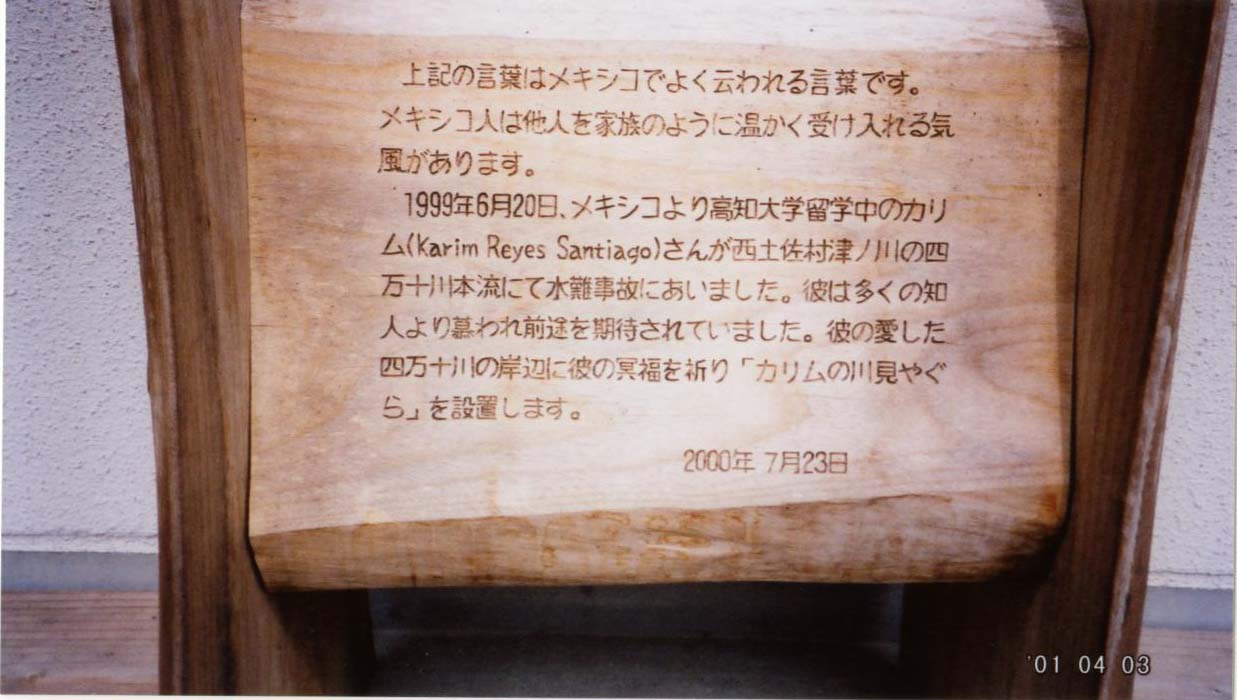 上記の言葉はメキシコでよく云われる言葉です。
メキシコ人は他人を家族のように温かく受け入れる気
風があります。
1999年6月20日、メキシコより高知大学留学中のカリ
ム(Karim Reyes Santiago)さんが西土佐村津ノ川の四
万十川本流にて水難事故にあいました。彼は多くの知
人より慕われ前途を期待されていました。彼の愛した
四万十川の岸辺に彼の冥福を祈り「カリムの川見やぐ
ら」を設置します。
2000年 7月23日
'01 04 03